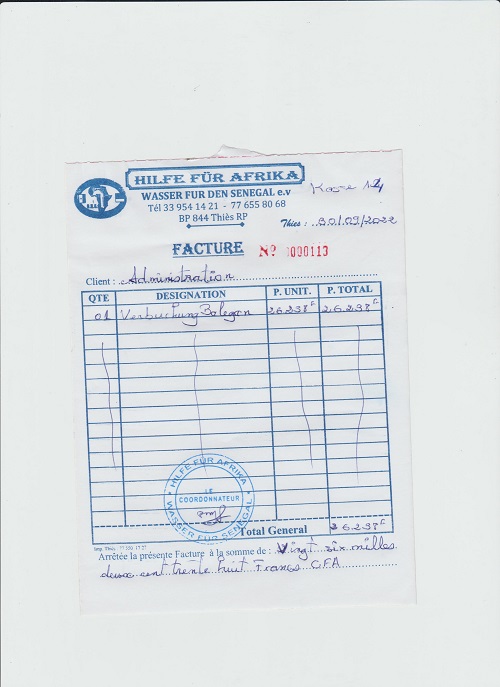 HILFE FÜR AFRIKA
WASSER FUR DEN SENEGAL e.v
Tél 33 954 14 21 - 77 655 80 68
BP 844 Thiès RP
Thies : 30/09/2022
FACTURE Nº 0000113
Client : Administration
QTE DESIGNATION P. UNIT. P. TOTAL
01 Verbuchung 26.238F 26.238F
HILFE FÜR AFRIKA
LE
COORDONNATEUR
WASSER FÜR SENEGAL
Total General 26.238F
Imp. Thiès
Arrêtée la présente Facture à la somme de : Vingt six milles
deux cent trente huit Francs CFA